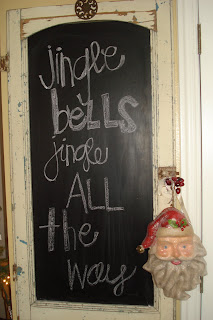 jingle
bells
jingle
ALL
the
way